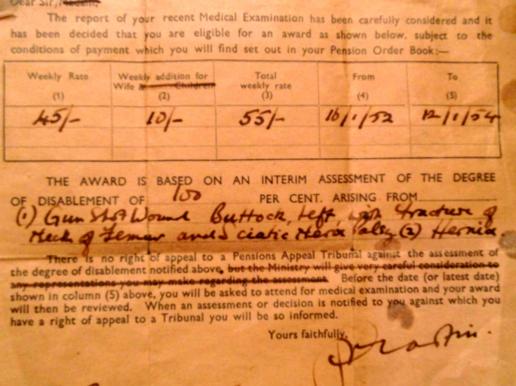 Dear Sir/Madam,
The report of your recent Medical Examination has been carefully considered and it
has been decided that you are eligible for an award as shown below, subject to the
conditions of payment which you will find set out in your Pension Order Book:—
Weekly Rate Weekly addition for Total From To
Wife & Children weekly rate
(1) (2) (3) (4) (5)
45/- 10/- 55/- 16/1/52 12/1/54
THE AWARD IS BASED ON AN INTERIM ASSESSMENT OF THE DEGREE
OF DISABLEMENT OF 100 PER CENT. ARISING FROM
(1) Gun Shot Wound Buttock, Left, with fracture of
Neck of Femur and Sciatic Nerve Palsy (2) Hernia
There is no right of appeal to a Pensions Appeal Tribunal against the assessment of
the degree of disablement notified above, but the Ministry will give very careful consideration to
any representations you may make regarding the assessment. Before the date (or latest date)
shown in column (5) above, you will be asked to attend for medical examination and your award
will then be reviewed. When an assessment or decision is notified to you against which you
have a right of appeal to a Tribunal you will be so informed.
Yours faithfully,